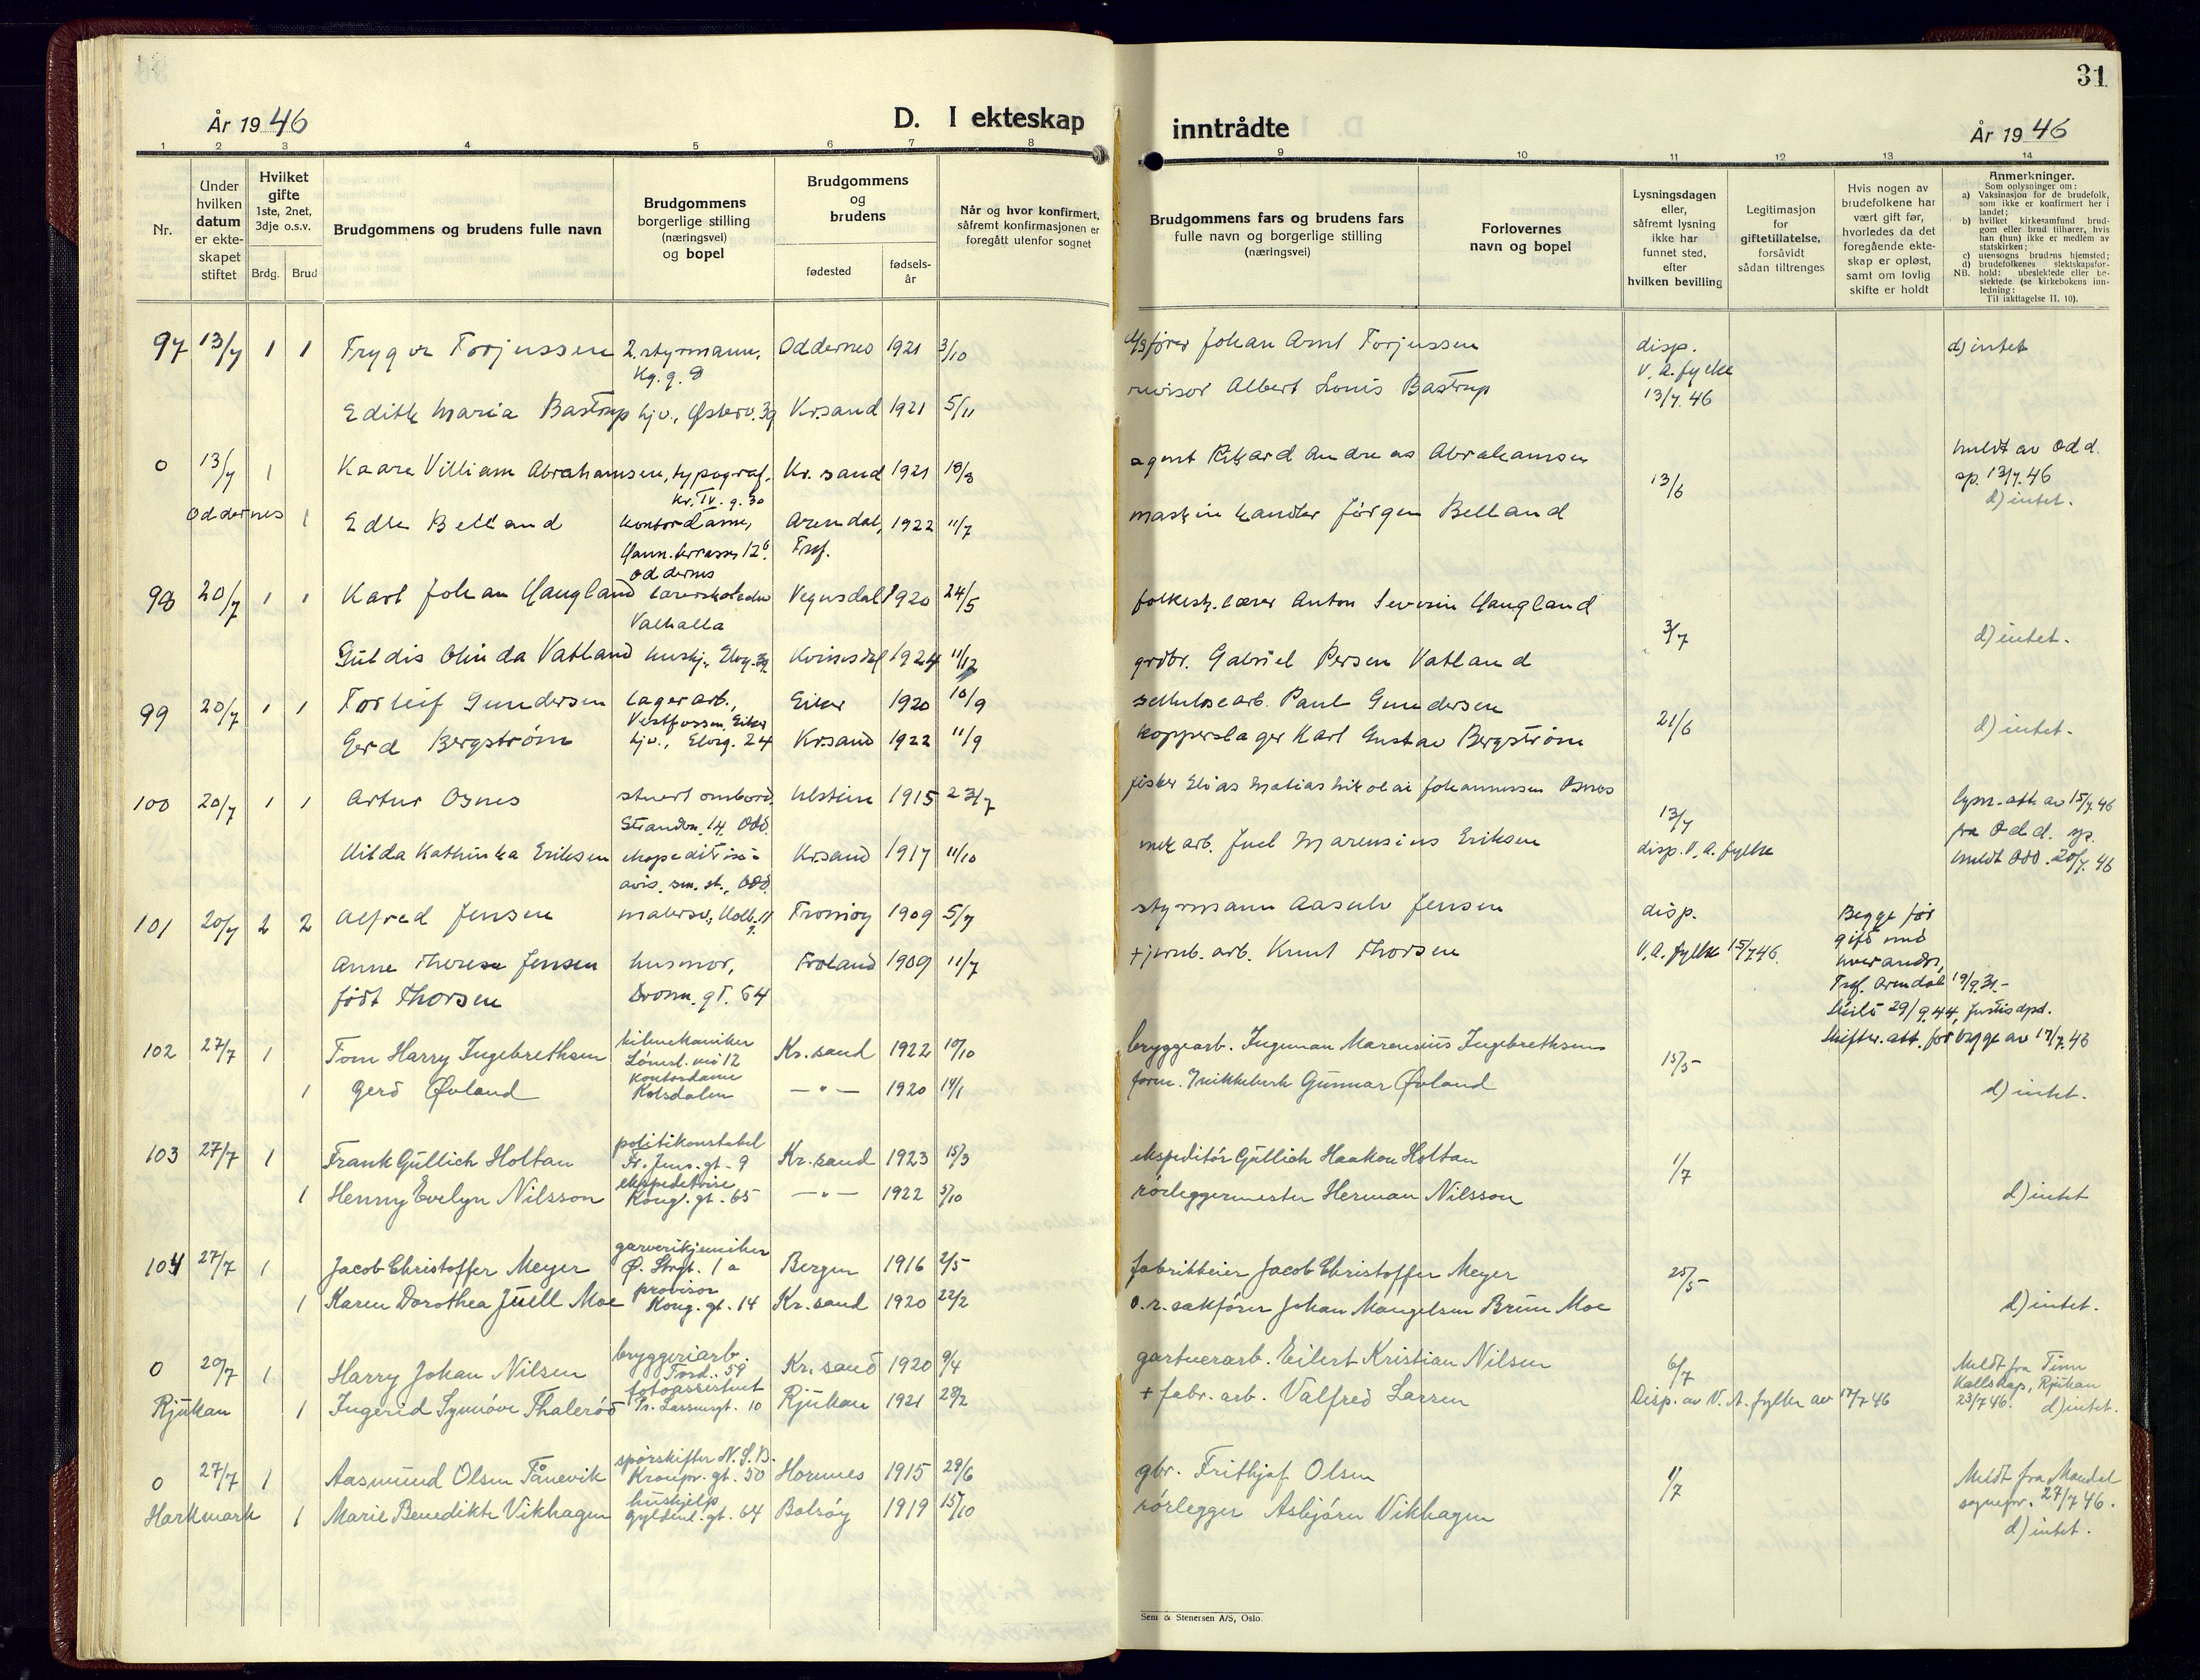 31
År 1946
D. I ekteskap
inntrådte
År 1946
1 2 3 4 5 6 7 8 9 10 11 12 13 14
Nr.
Under hvilken datum er ekte-skapet stiftet
Hvilket gifte 1ste, 2net, 3dje o.s.v.
Brdg. Brud
Brudgommens og brudens fulle navn
Brudgommens borgerlige stilling (næringsvei) og bopel
Brudgommens og brudens
fødested
fødsels-år
Når og hvor konfirmert, såfremt konfirmasjonen er foregått utenfor sognet
Brudgommens fars og brudens fars fulle navn og borgerlige stilling (næringsvei)
Forlovernes navn og bopel
Lysningsdagen eller, såfremt lysning ikke har funnet sted, efter hvilken bevilling
Legitimasjon for giftetillatelse, forsåvidt sådan tiltrenges
Hvis nogen av brudefolkene har vært gift før, hvorledes da det foregående ekte-skap er opløst, samt om lovlig skifte er holdt
Anmerkninger.
Som oplysninger om:
a) Vaksinasjon for de brudefolk, som ikke er konfirmert her i landet;
b) hvilket kirkesamfund brud-gom eller brud tilhører, hvis han (hun) ikke er medlem av statskirken;
c) utensogns brudens hjemsted;
d) brudefolkenes slektskapsfor-hold: ubeslektede eller be-slektede (se kirkebokens inn-ledning:
NB. Til iakttagelse II, 10).
97 13/7 1 1 Trygve Torjussen 2. styrmann, Oddernes 1921 3/10 Johan Arnt Torjussen disp. d) intet
Kg. g. 8 V. A. fylke
Edith Maria Bastrup hjv., Østerv. 39 Kr.sand 1921 5/11 revisor Albert Louis Bastrup 13/7.46
0 13/7 1 Kaare Villiam Abrahamsen, typograf, Kr.sand 1921 18/3 agent Rikard Andreas Abrahamsen 13/6 meldt av Odd.
Kr. IV. g. 30 sp. 13/7.46
Oddernes 1 Edle Belland kontordame, Arendal, 1922 11/7 maskinhandler Jørgen Belland d) intet.
Hann.terrasse 12b. Tref.
Oddernes
98 20/7 1 1 Karl Johan Haugland lærerskoleelev Vegusdal 1920 24/5 folkesk.lærer Anton Severin Haugland 3/7 d) intet.
Valhalla
Guldis Olinda Vatland hushj., Elvg. 39 Kvinesdal 1924 11/12 grdbr. Gabriel Persen Vatland
99 20/7 1 1 Torleif Gundersen lagerarb., Eiker 1920 10/9 cellulosearb. Paul Gundersen 21/6 d) intet.
Vestfossen, Eiker
Gerd Bergstrøm hjv., Elveg. 24 Kr.sand 1922 11/9 kopperslager Karl Gustav Bergstrøm
100 20/7 1 1 Artur Osnes stuert ombord, Ulstein 1915 23/7 fisker Elias Matias Nikolai Johannessen Osnes 13/7 lysn.-att. av 15/7.46
Strandv. 14, Odd. disp. V. A. fylke fra Odd. sp.
Hilda Kathinka Eriksen ekspeditrise Kr.sand 1917 11/10 mek arb. Juel Marensius Eriksen meldt Odd. 20/7.46
101 20/7 2 2 Alfred Jensen malersv., Holb. 11 Tromøy 1909 5/7 styrmann Aasulv Jensen disp. Begge før
V. A. fylke 15/7.46. gift med
Anne Therese Jensen husmor, Froland 1909 11/7 + jernb. arb. Knut Thorsen hverandre,
født Thorsen Dronn. gt. 64 Tref. Arendal 19/9.31.-
Skilt 29/9.44, Justisdpd.
Skiftes.att. for begge av 17/7.46
102 27/7 1 Tom Harry Ingebrethsen bilmekaniker Kr.sand 1922 10/10 bryggearb. Ingeman Marensius Ingebrethsen 15/5
1 Gerd Øvland kontordame —"— 1920 14/1 form. Gunnar Øvland d) intet.
Kolsdalen
103 27/7 1 Frank Güllich Holtan politikonstabel Kr.sand 1923 15/3 ekspeditør Güllich Haakon Holtan 1/7
Fr. Jens. gt. 9
1 Henny Evelyn Nilsson ekspeditrise —"— 1922 5/10 rørleggermester Herman Nilsson d) intet
Kong. gt. 65
104 27/7 1 Jacob Christoffer Meyer garverikjemiker Bergen 1916 2/5 fabrikkeier Jacob Christoffer Meyer 25/5
Ø. Strgt. 1 a
1 Karen Dorothea Juell Moe provisor Kr.sand 1920 22/2 o.r. sakfører Johan Mangelsen Brun Moe d) intet.
Kong. gt. 14
0 20/7 1 Harry Johan Nilsen bryggeriarb. Kr.sand 1920 9/4 gartnerarb. Eilert Kristian Nilsen 6/7 Meldt fra Tinn
Tord. 59 Kallskap, Rjukan
Rjukan 1 Ingerid Synnøve Thalerød fotoassistent Rjukan 1921 28/2 + fabr. arb. Valfred Larsen Disp. av V. A. fylke av 17/7 46 23/7 46. d) intet.
0 27/7 1 Aasmund Olsen Tånevik sporskifter N.S.B. Hornnes 1915 29/6 gbr. Frithjof Olsen 1/7 Meldt fra Mandal
Kronpr. gt. 50 sognepr. 27/7 46.
Harkmark 1 Marie Benedikte Vikhagen hushjelp Bolsøy 1919 15/10 rørlegger Asbjørn Vikhagen d) intet.
Gyldenl. gt. 64
Sem & Stenersen A/S, Oslo.